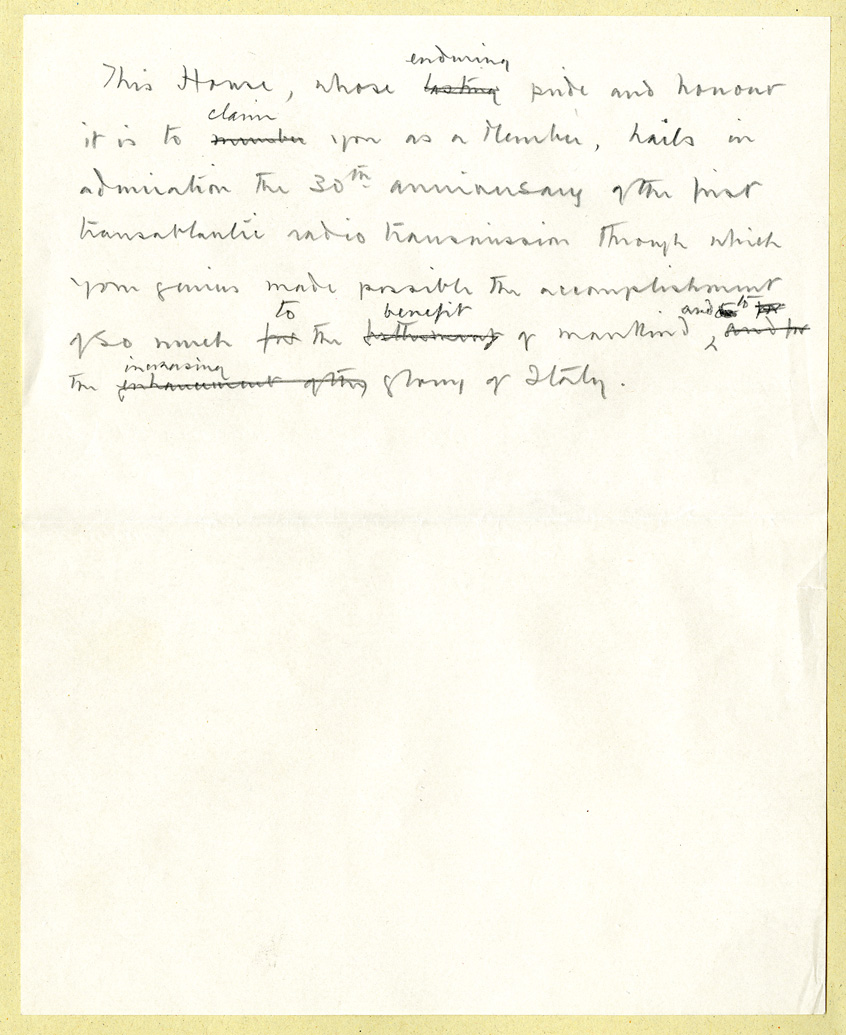 enduring
This House, whose lasting pride and honour
claim
it is to number you as a Member, hails in
admiration the 30th anniversary of the first
transatlantic radio transmission through which
your genius made possible the accomplishment
to benefit and to for
of so much for the of mankind, and for
increasing
the enhancement of the glory of Italy.